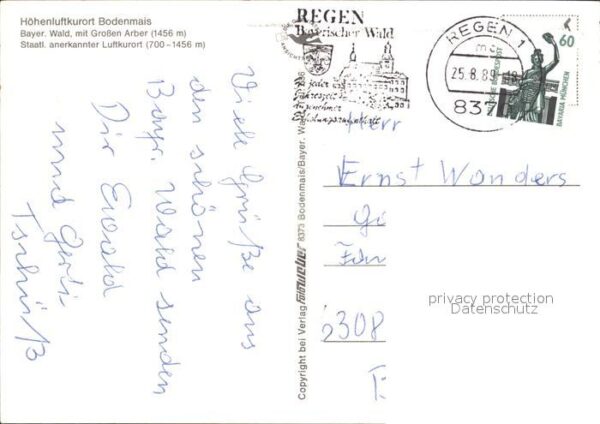 Höhenluftkurort Bodenmais
Bayer. Wald, mit Großen Arber (1456 m)
Staatl. anerkannter Luftkurort (700-1456 m)
REGEN
Bayerischer Wald
zu jeder
Jahreszeit
angenehmer
Erholungsaufenthalt
REGEN 1
25.8.89-18
837
60
DEUTSCHE BUNDESPOST
BAVARIA MÜNCHEN
Viele Grüße aus
den schönen
Bayr. Wald senden
Dir Ewald
und Gerti
Tschüß
Copyright bei Verlag 8373 Bodenmais/Bayer. Wald
Herr
Ernst Wonders
6308
privacy protection
Datenschutz